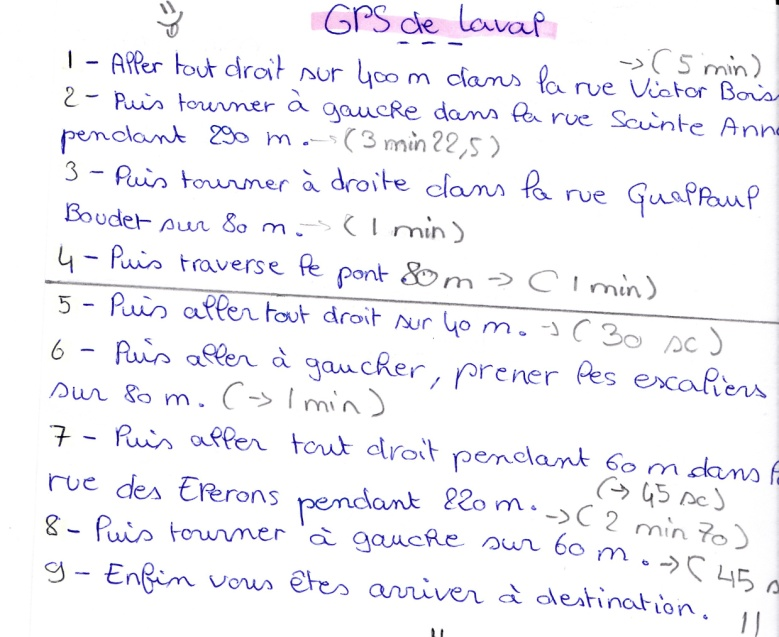 GPS de Laval
1 - Aller tout droit sur 400 m dans la rue Victor Bois → (5 min)
2 - Puis tourner à gauche dans la rue Sainte Ann
pendant 290 m. → (3 min 22,5)
3 - Puis tourner à droite dans la rue Quai Paul
Boudet sur 80 m. → (1 min)
4 - Puis traverse le pont 80 m → (1 min)
5 - Puis aller tout droit sur 40 m. → (30 sc)
6 - Puis aller à gaucher, prener les escaliers
sur 80 m. (→ 1 min)
7 - Puis aller tout droit pendant 60 m dans l
rue des Eperons pendant 220 m. (→ 45 sc)
→ (2 min 70)
8 - Puis tourner à gauche sur 60 m. → (45 s
9 - Enfin vous êtes arriver à destination.